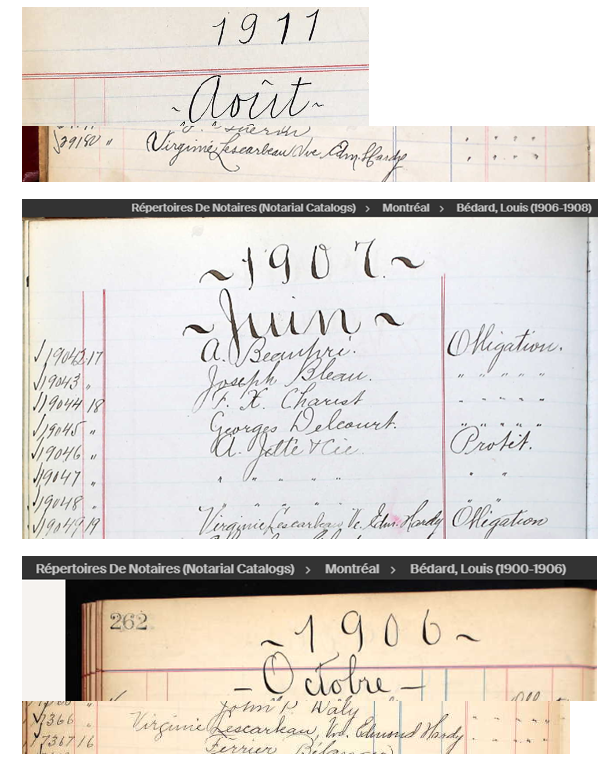 1911
~Août~
29180 " Virginie Lescarbeau Vve Edm. Hardy " " " "
Répertoires De Notaires (Notarial Catalogs) › Montréal › Bédard, Louis (1906-1908)
~1907.~
~Juin~
19042 17 A. Beaupré. Obligation.
19043 " Joseph Bleau. " " " " "
19044 18 F. X. Charest " " " " "
19045 " Georges Delcourt. " " " " "
19046 " A. Jetté & Cie. Protêt.
19047 " " " " " " "
19048 " " " " " " "
19049 19 Virginie Lescarbeau Ve. Edm. Hardy Obligation
Répertoires De Notaires (Notarial Catalogs) › Montréal › Bédard, Louis (1900-1906)
262
~1906~
–Octobre–
John P. Waly
17366 " Virginie Lescarbeau, Vve. Edmond Hardy " " " "
17367 16 Ferrier Bélanger " " " "